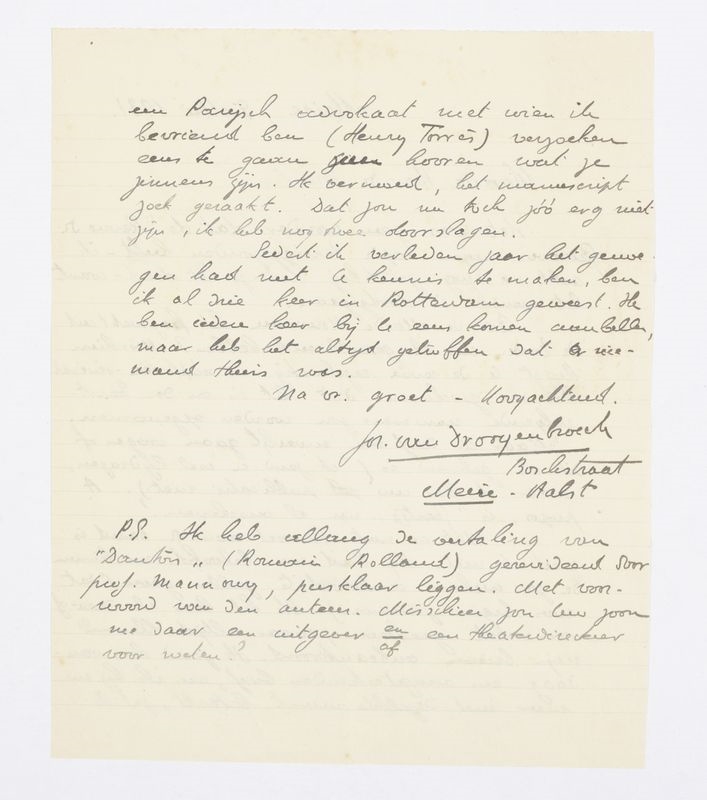 een Parijsch advokaat met wien ik
bevriend ben (Henry Torrès) verzoeken
eens te gaan hooren wat ze
zinnens zijn. Ik vermoed, het manuscript
zoek geraakt. Dat zou nu toch zóó erg niet
zijn, ik heb nog twee doorslagen.
Sedert ik verleden jaar het genoe-
gen had met U kennis te maken, ben
ik al drie keer in Rotterdam geweest. Ik
ben iedere keer bij U eens komen aanbellen,
maar heb het altijd getroffen dat er nie-
mand thuis was.
Na vr. groet - Hoogachtend.
Jor. van Drooyenbroeck
Boschstraat
Meire - Aalst
P.S. Ik heb allang de vertaling van
"Danton" (Romain Rolland) gerevideerd door
prof. Mannoury, persklaar liggen. Met voor-
woord van den auteur. Misschien zou Uw zoon
me daar een uitgever en een theaterdirecteur
of
voor weten?